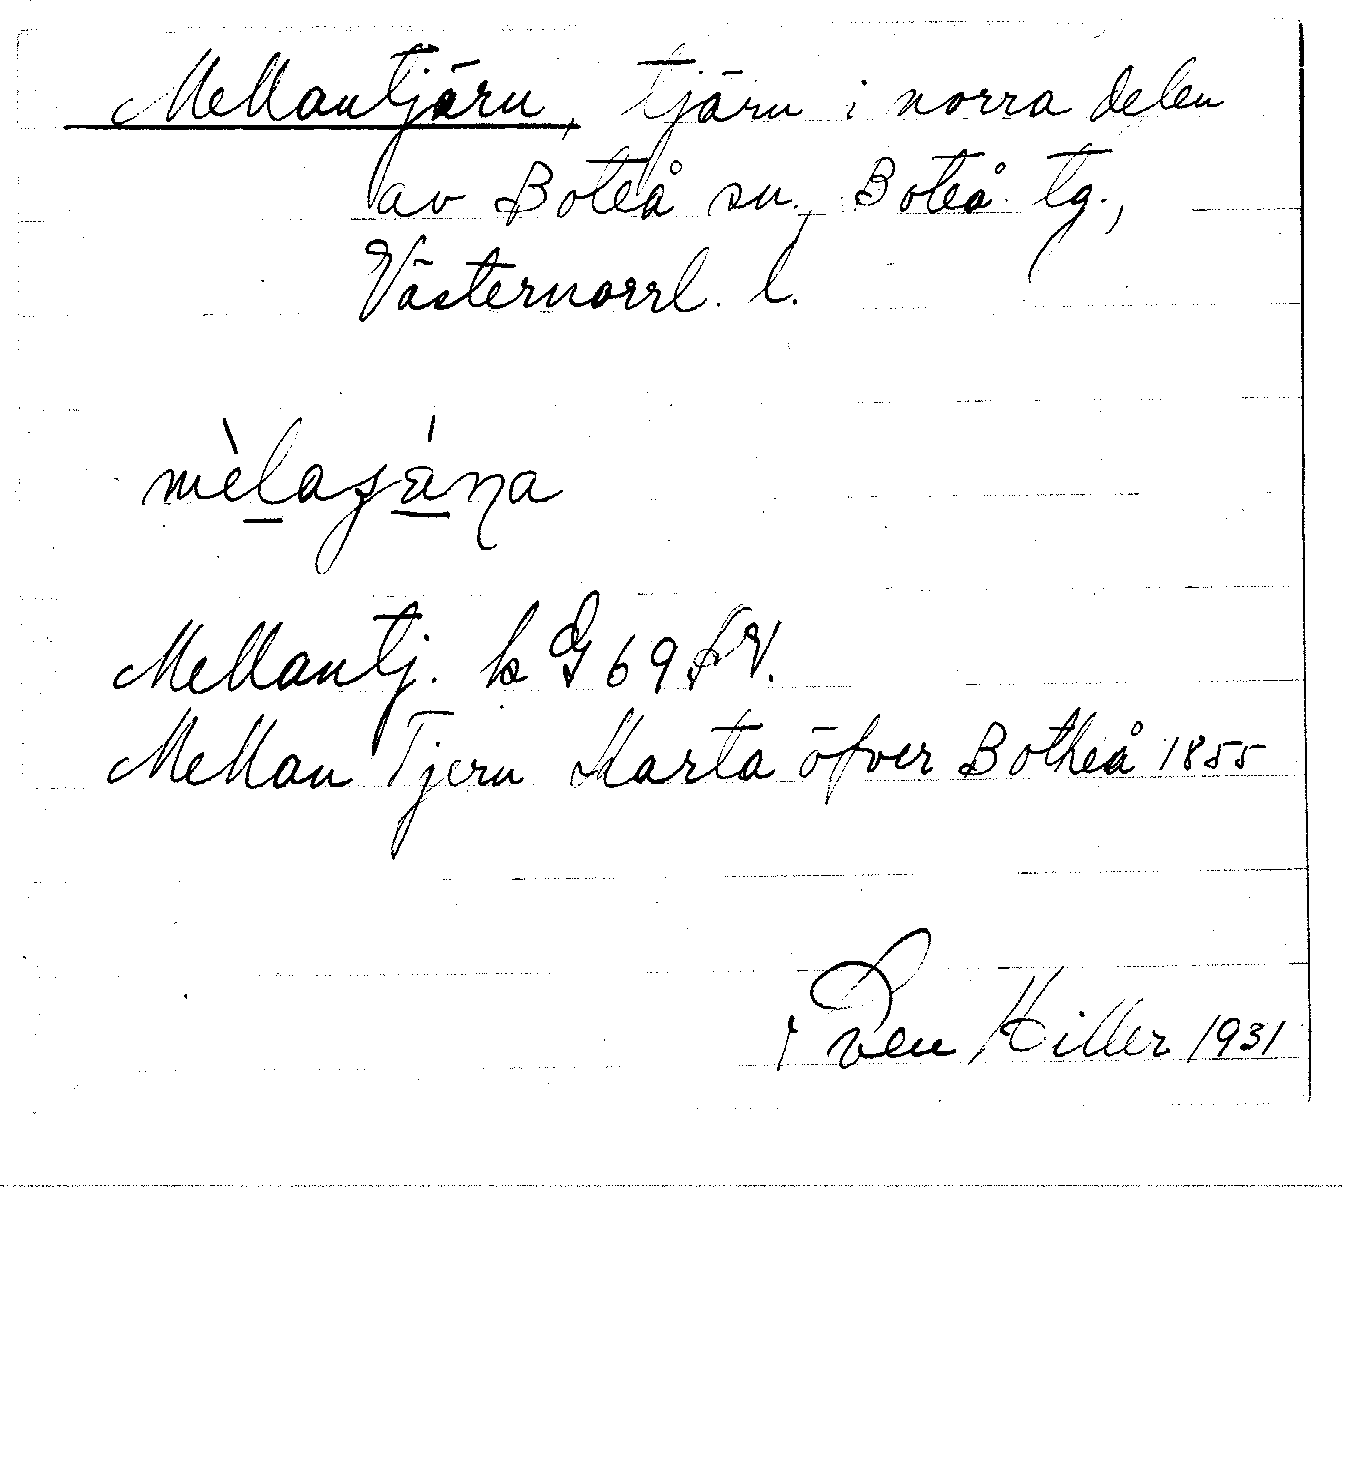 Mellantjärn, tjärn i norra delen
av Boteå sn., Boteå tg.,
Västernorrl. l.
Mellantj. k G 69 SV.
Mellan Tjern Karta öfver Botheå 1855
Sven Hiller 1931